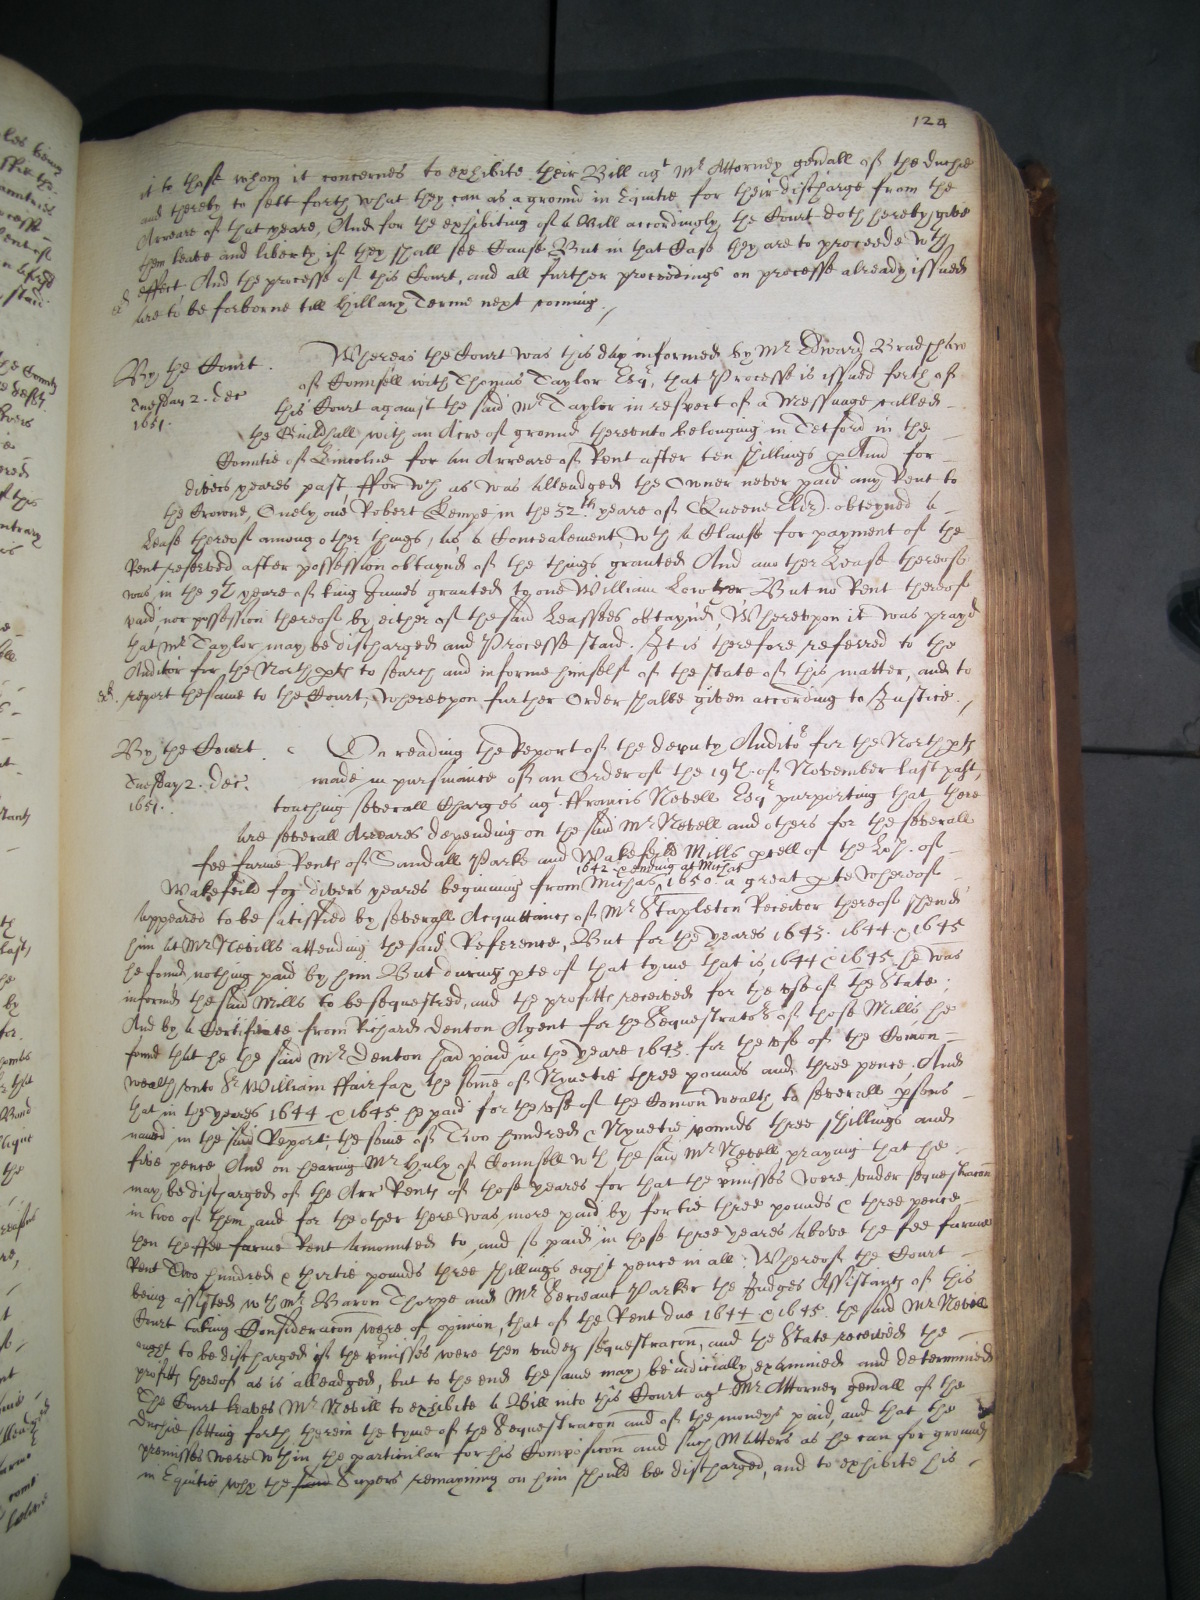 124
it to those whom it concernes to exhibite their Bill agt Mr Attorney genall of the Duchie
and thereby to sett forth what they can as a ground in Equitie for their discharge from the
Arreare of that yeare, And for the exhibiting of a Bill accordingly the Court doth hereby give
them leave and liberty if they shall see Cause But in that Case they are to proceede wth
effect And the processe of this Court, and all further proceedings on processe already issued
are to be forborne till Hillary Terme next coming./
By the Court.
Tuesday 2. Dec
1651.
Whereas the Court was this day informed by Mr Edward Bradshaw
of Counsell with Thomas Taylor Esqr, that Processe is issued forth of
this Court against the said Mr Taylor in respect of a Messuage called
the Guildhall with an Acre of ground thereunto belonging in Tetford in the
Countie of Lincolne for an Arreare of Rent after ten shillings p And for
divers yeares past, ffor wch as was alleadged the Owner never paid any Rent to
the Crowne, Onely one Robert Kempe in the 32th yeare of Queene Eliz. obteyned a
Lease thereof among other things, as a Concealement, wth a Clause for payment of the
Rent reserved, after possession obtayned of the things granted And another Lease thereof
was in the 9th yeare of king James granted to one William Lowther But no Rent thereof
paid nor possession thereof by either of the said Leassees obtayned, Whereupon it was prayd
that Mr Taylor may be discharged and Processe staid. It is therefore referred to the
Auditor for the North pts to search and informe himself of the state of this matter, and to
report the same to the Court, whereupon further Order shalbe given according to Justice./
By the Court
Tuesday 2. Dec.
1651.
On reading the Report of the deputy Auditor for the North pts
made in pursuance of an Order of the 19th of November last past,
touching severall Charges agt ffrancis Nevell Esqr purporting that there
are severall Arreares depending on the said Mr Nevell and others for the severall
fee farme Rents of Sandall Parke and Wakefeild Mills pcell of the Lopp. of
1642 & ending at Michas
Wakefeild for divers yeares beginning from Michas 1650. a great pte whereof
appeared to be satisfied by severall Acquittances of Mr Stapleton Receivor thereof shewed
him at Mr Nevills attending the said Reference, But for the yeares 1643. 1644 & 1645
he found nothing paid by him But during pte of that tyme that is, 1644 & 1645, he was
informed the said Mills to be sequestred, and the profitts received for the use of the State;
And by a Certificate from Richard Denton Agent for the Sequestrators of those Mills he
found that he the said Mr Denton had paid in the yeare 1643. for the use of the Comon
wealth unto Sr William ffairfax the some of Nynetie three pounds and three pence. And
that in the yeares 1644 & 1645 he paid for the use of the Comon wealth to severall psons
named in the said Report, the some of Two hundred & Nynetie pounds three shillings and
five pence And on hearing Mr Hulp of Counsell wth the said Mr Nevell, praying that he
may be discharged of the Arr Rents of those yeares for that the pmisses were under sequestracon
in two of them, and for the other there was more paid by fortie three pounds & three pence
then the ffee farme Rent amounted to, and so paid in those three yeares above the fee farme
Rent Two hundred & thirtie pounds three shillings eight pence in all: Whereof the Court
being assisted wth Mr Baron Thorpe and Mr Serieant Parker the Judges Assistants of this
Court taking Consideracon were of opinion, that of the Rent due 1644 & 1645. the said Mr Nevill
ought to be discharged if the pmisses were then under sequestracon, and the State received the
profitts thereof as is alleadged, but to the end the same may be iudicially examined and determined
The Court leaves Mr Nevill to exhibite a Bill into this Court agt Mr Attorney genall of the
Duchie setting forth therein the tyme of the Sequestracon and of the moneys paid, and that the
premisses were wthin the particular for his Composicon and such Matters as he can for ground
in Equitie why the said Supers remayning on him should be discharged, and to exhibite his